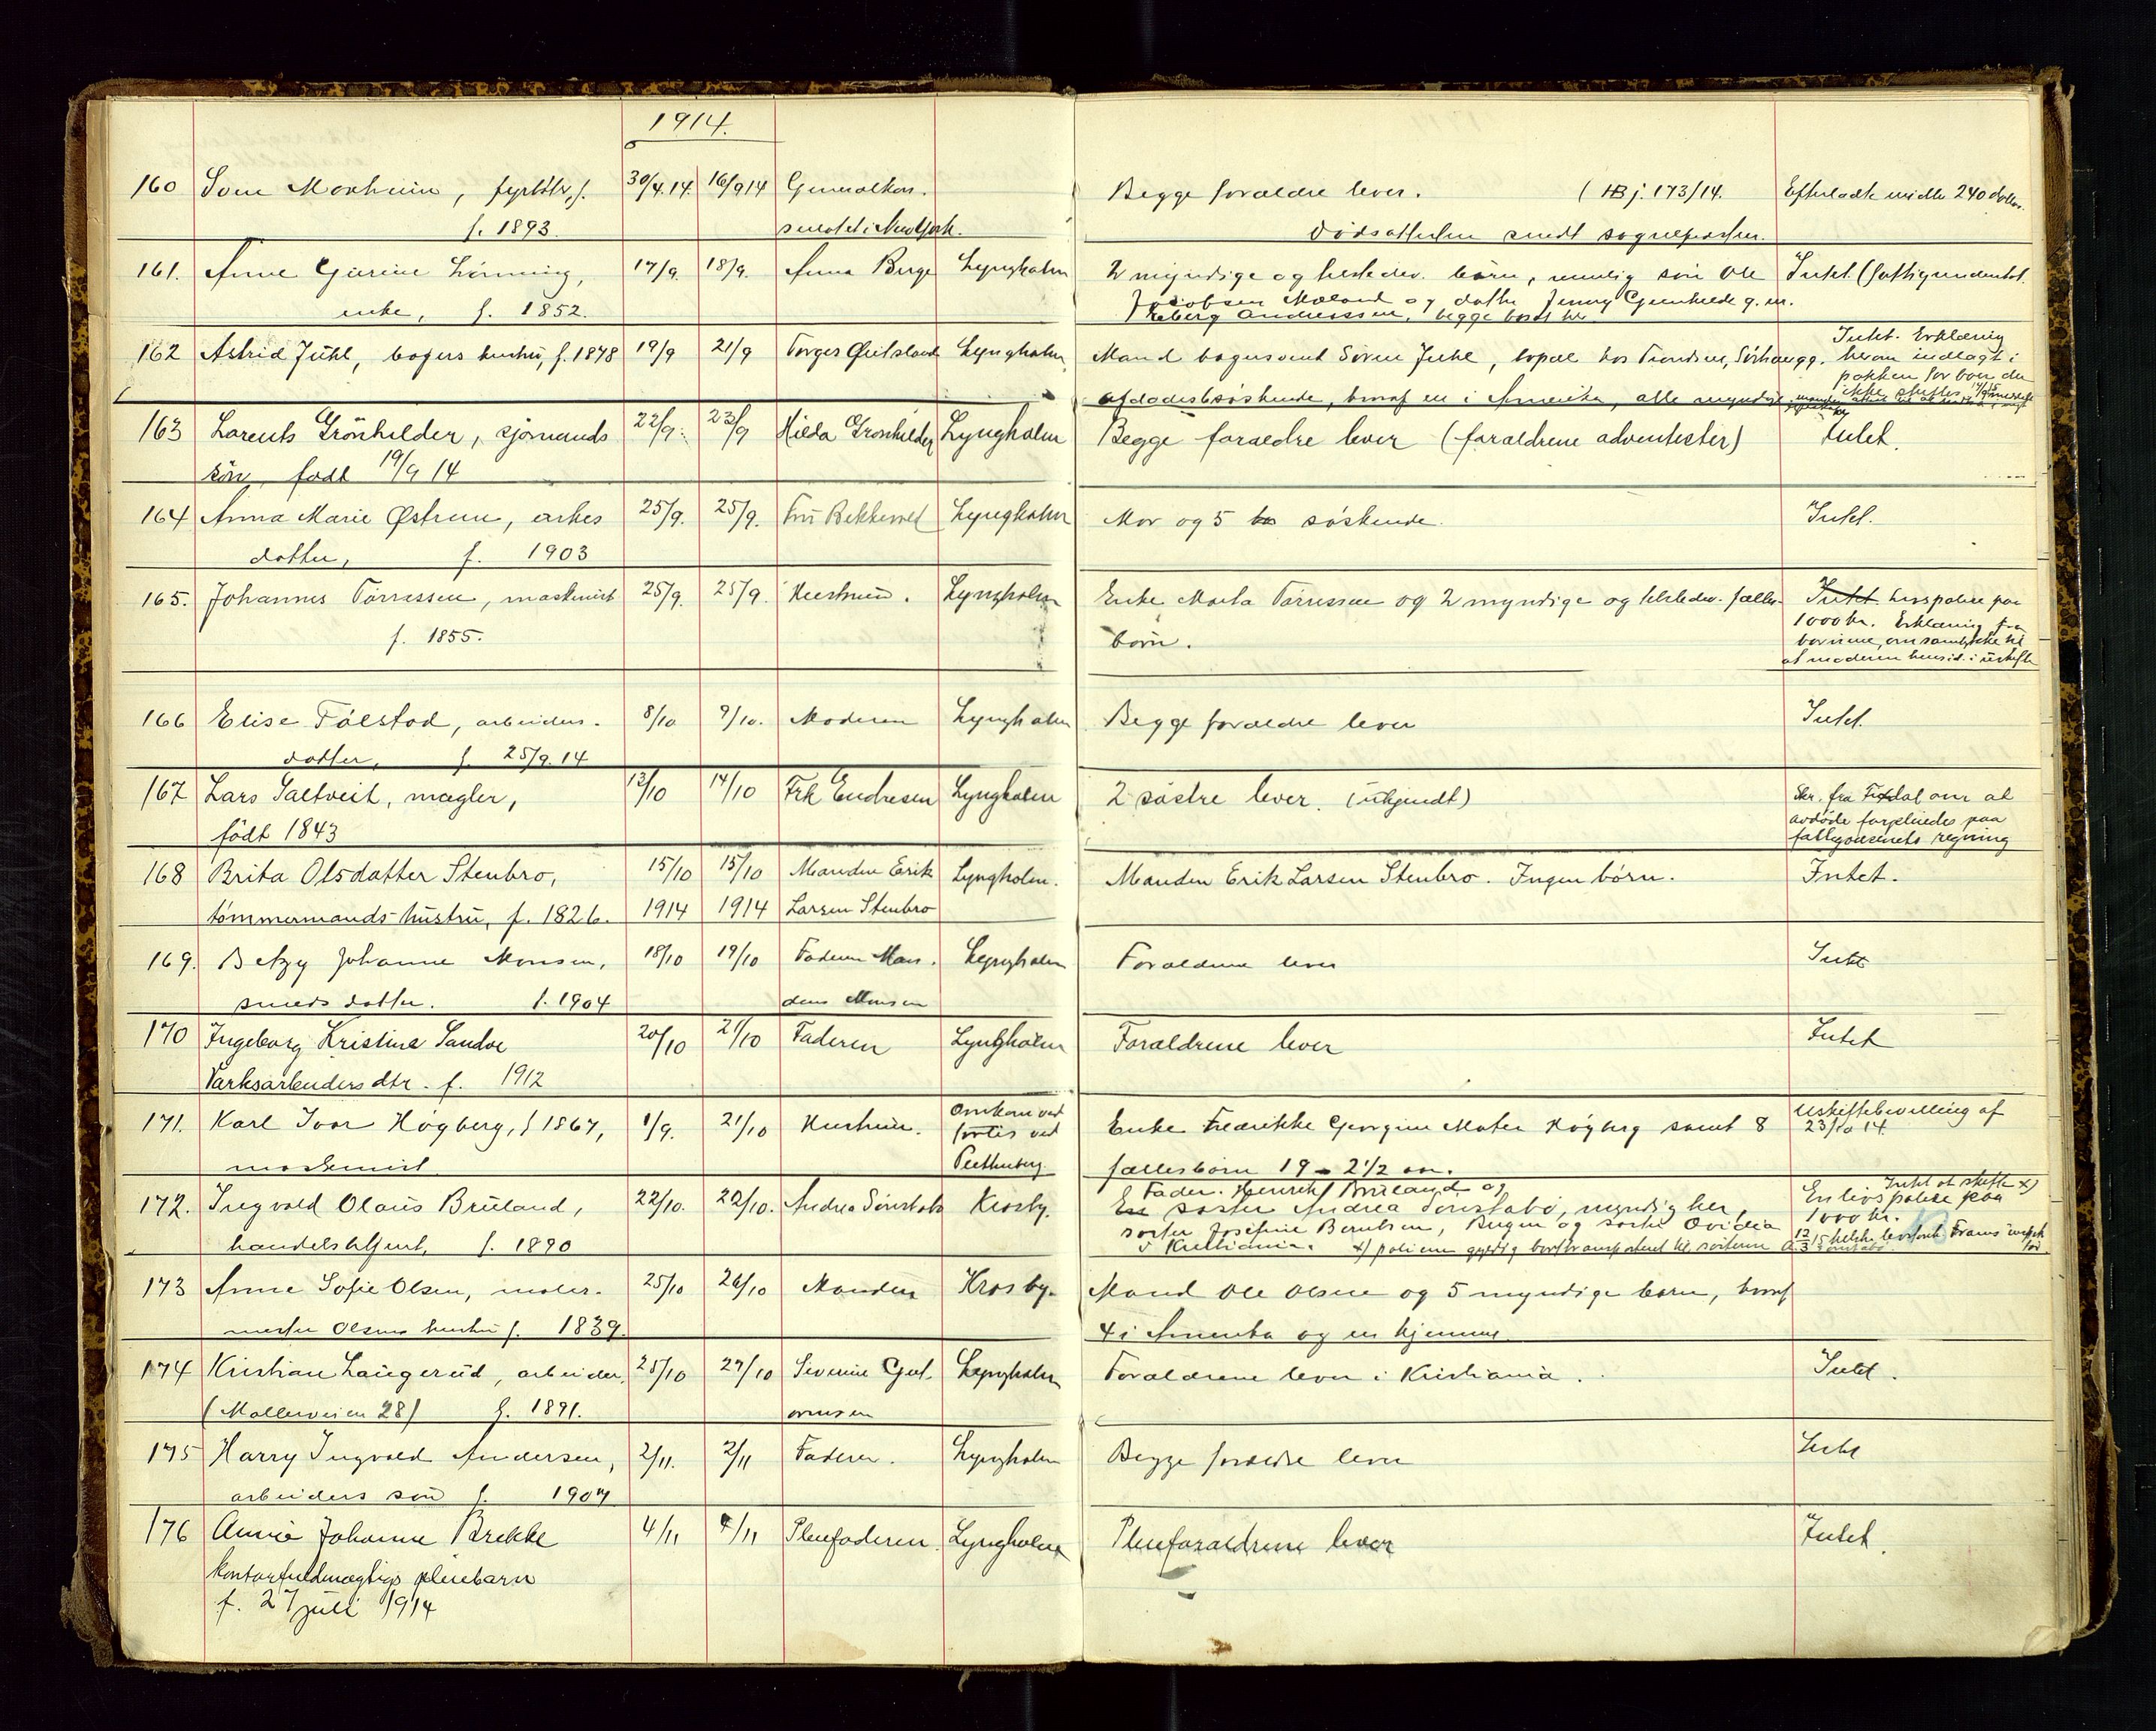 1914.
160 Sven Moxheim, fyrbøter, 30/4.14. 16/9 14 Generalkon. Begge forældre lever. (HB j. 173/14. Efterladte midler 240 dollar.
f. 1893. sulatet i New York. Dødsattesten sendt sogneprosten.
161. Anne Gurine Lønning, 17/9. 18/9. Anna Berge Lyngholm 2 myndige og tilstedev. børn, nemlig søn Ole Intet. (fattigunderstøt.
enke, f. 1852. Jacobsen Moland og datter Jenny Gunhilde g. m.
Andreassen, begge bosat her
162 Astrid Juhl, bagers hustru, f. 1878 19/9 21/9 Torger Lyngholm Mand bagersvend Søren Juhl, hos Trondsen, Intet. Erklæring
herom indlagt i
pakken for
afdødes søskende, hvoraf en i Amerika, alle myndige
163 Lorents Grønhilder, sjømands 22/9. 23/9 Hilda Grønhilder Lyngholm Begge forældre lever (forældrene adventister) Intet.
søn, født 19/9 14
164 Anna Marie Østrem, enkes 25/9. 25/9. Fru Lyngholm Mor og 5 søskende. Intet.
datter, f. 1903
165. Johannes Tørressen, maskinist 25/9. 25/9. Hustruen. Lyngholm Enke Marta Tørressen og 2 myndige og tilstedev. fælles- Intet Livspolice paa
f. 1855. børn. 1000 kr. Erklæring fra
børnene, om samtykke til
at moderen hensid. i uskifte
166 Elise Tølstad, arbeiders- 8/10 9/10. Moderen Lyngholm Begge forældre lever Intet.
datter, f. 25/9. 14
167 Lars Saltveit, mægler, 13/10 14/10 Frk Endresen Lyngholm 2 søstre lever. (ukjendt) Skr. fra om at
født 1843 avdøde forpleiedes paa
fattigvæsenets regning
168 Brita Olsdatter Stenbro, 15/10 15/10 Manden Erik Lyngholm. Manden Erik Larsen Stenbro. Ingen børn. Intet.
tømmermands hustru, f. 1826. 1914 1914 Larsen Stenbro
169. Betzy Johanne Monsen, 18/10 19/10 Faderen Lyngholm Forældrene lever Intet
smeds datter. f. 1904 Monsen
170 Ingeborg Kristine Sandve 20/10 21/10 Faderen Lyngholm Forældrene lever Intet
Værksarbeiders dtr. f. 1912
171. Karl Ivar Høgberg, f 1867, 1/9. 21/10 Hustruen. Omkom ved Enke Fredrikke Georgine Høgberg samt 8 Uskiftebevilling af
maskinist forlis ved fællesbørn 19 - 2 1/2 aar. 23/10 14.
172. Ingvald Olaus Bruland, 22/10. 22/10. Andrea Tønstabø Krosby. Fader Henrik Bruland og Intet at skifte x)
søster Andrea Tønstabø, myndig her, En livspolice paa
handelsagent, f. 1890 søster Josefine Berntsen, Bergen og søster Ovidia 1000 kr.
i Kristiania. x) policen gyldig borttransportert til søsteren
173 Anne Sofie Olsen, maler- 25/10 26/10 Manden Krosby. Mand Ole Olsen og 5 myndige børn, hvoraf
mester Olsens hustru f. 1839. 4 i Amerika og en hjemme
174 Kristian Laugerud, arbeider, 25/10 27/10 Severine Gut- Lyngholm Forældrene lever i Kristiania. Intet.
(Mølleveien 28) f. 1891. ormsen
175 Harry Ingvald Andersen, 2/11. 2/11 Faderen. Lyngholm Begge forældre lever Intet
arbeiders søn f. 1907
176 Annie Johanne Brekke 4/11 4/11 Pleiefaderen Lyngholm Pleieforældrene lever Intet.
kontorfuldmægtigs pleiebarn
f. 27 juli 1914